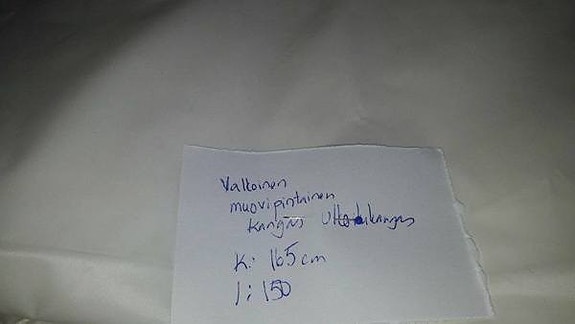 Valkoinen
muovipintainen
kangas ulkoilukangas
K: 165 cm
l: 150